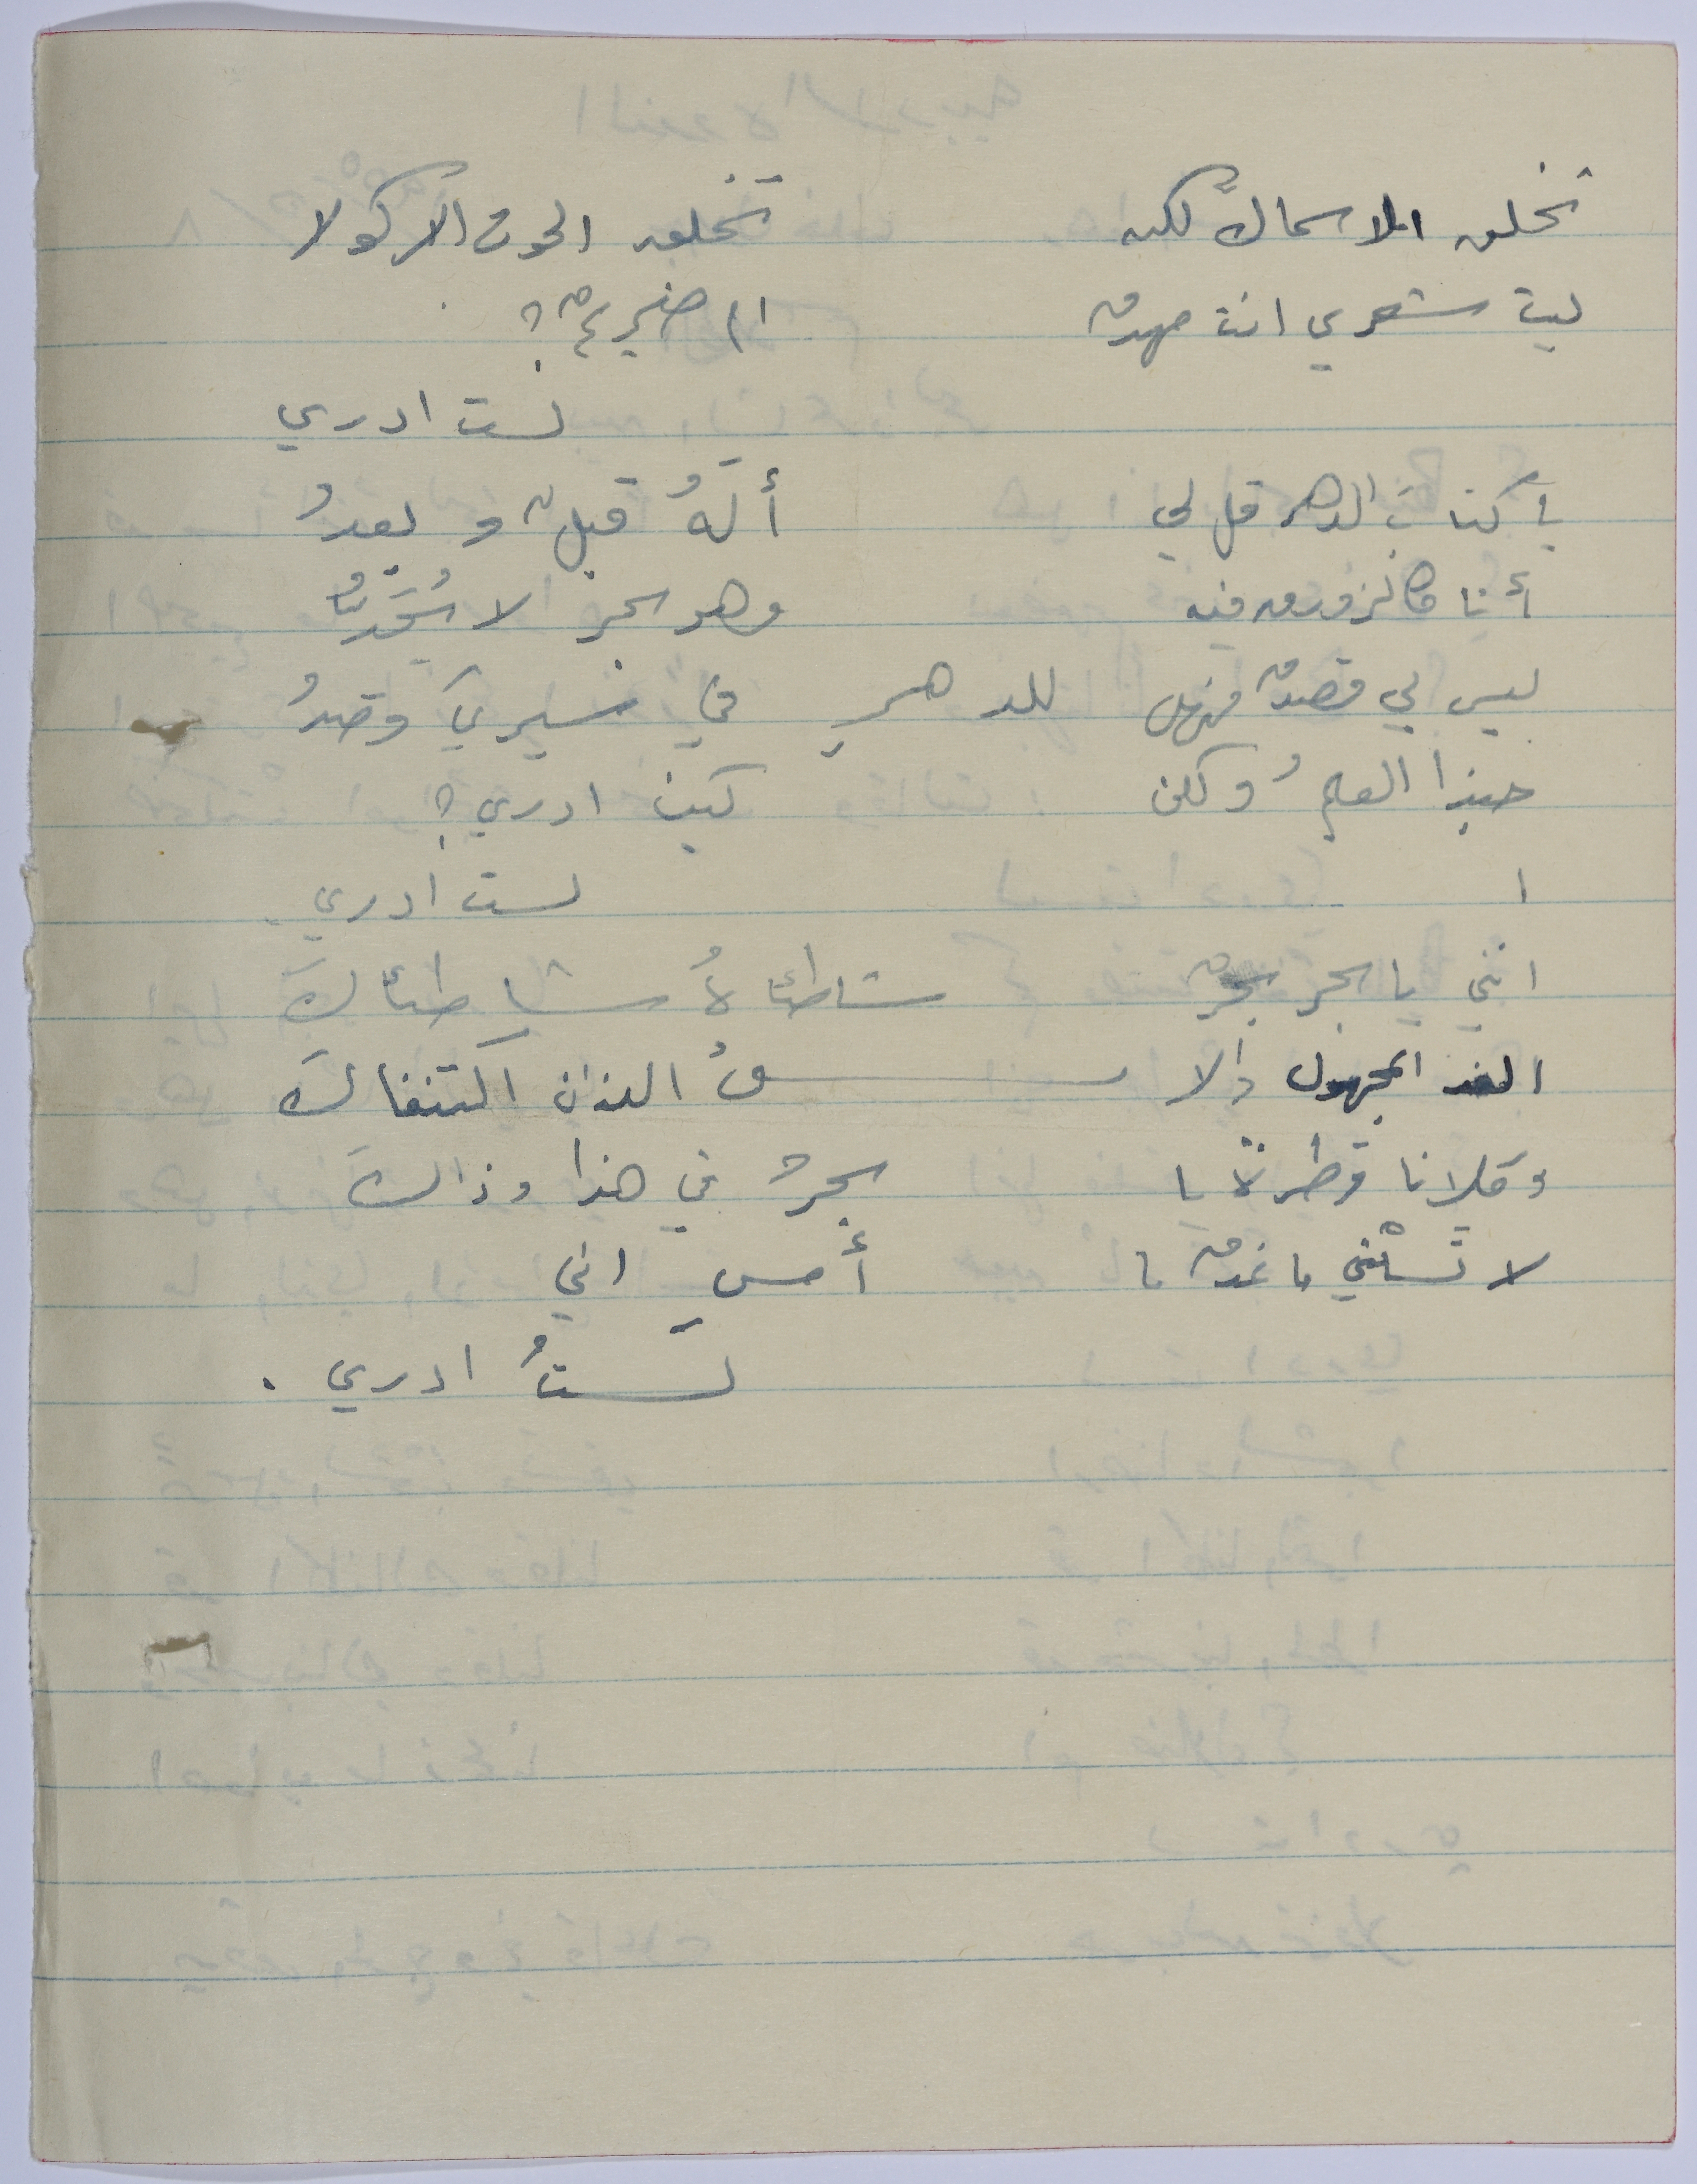 تخلق الاسماكَ لكن تخلق الحوت الاكولا
ليت شعري انت مهدٌ ام ضريحٌ؟
لست ادري
يا كتابَ الدهر قل لي ألَهُ قبلٌ و بعدُ
أنا كالزورق فيه وهو بحر لا يُحَدُّ
ليس لي قصدٌ فهل للدهرِ في سيريَ قصدُ
حبذا العلمُ ولكن كيف ادري؟
لست ادري.
انني يا بحر بحرٌ شاطئاهُ شاطئاكَ
الغد المجهول والامسُ اللذان اكتنفاكَ
وكلانا قطرةٌ يا بحرُ في هذا وذاكَ
لا تَسَلْني ما غدٌ ما أمسِ اني
لَستُ ادري.